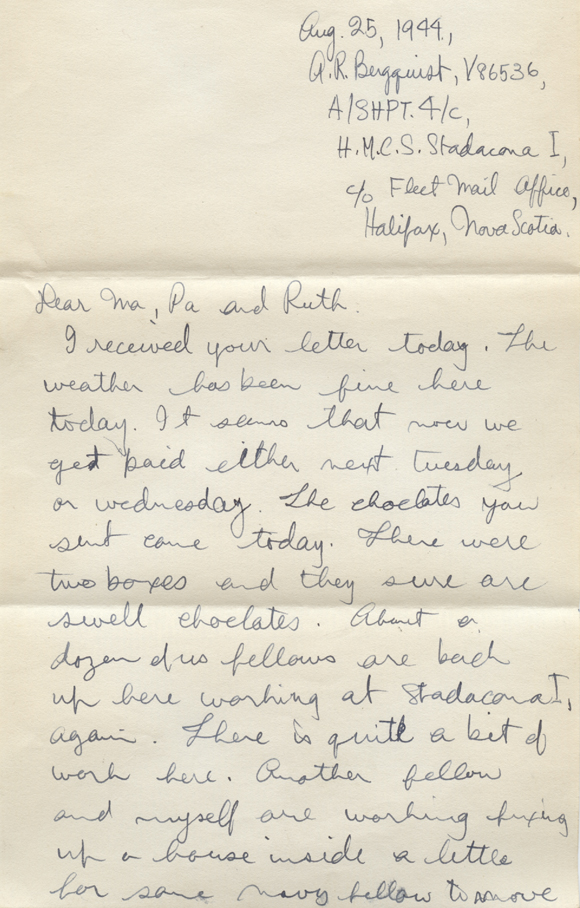 Aug. 25, 1944,
A.R. Bergquist, V86536,
A/SHPT. 4/c,
H.M.C.S. Stadacona I,
c/o Fleet Mail Office,
Halifax, Nova Scotia.
Dear Ma, Pa and Ruth.
I received your letter today. The
weather has been fine here
today. It seems that now we
get paid either next Tuesday
or wednesday. The choclates you
sent came today. There were
two boxes and they sure are
swell choclates. About a
dozen of us fellows are back
up here working at Stadacona I,
again. There is quite a bit of
work here. Another fellow
and myself are working fixing
up a house inside a little
for some navy fellow to move